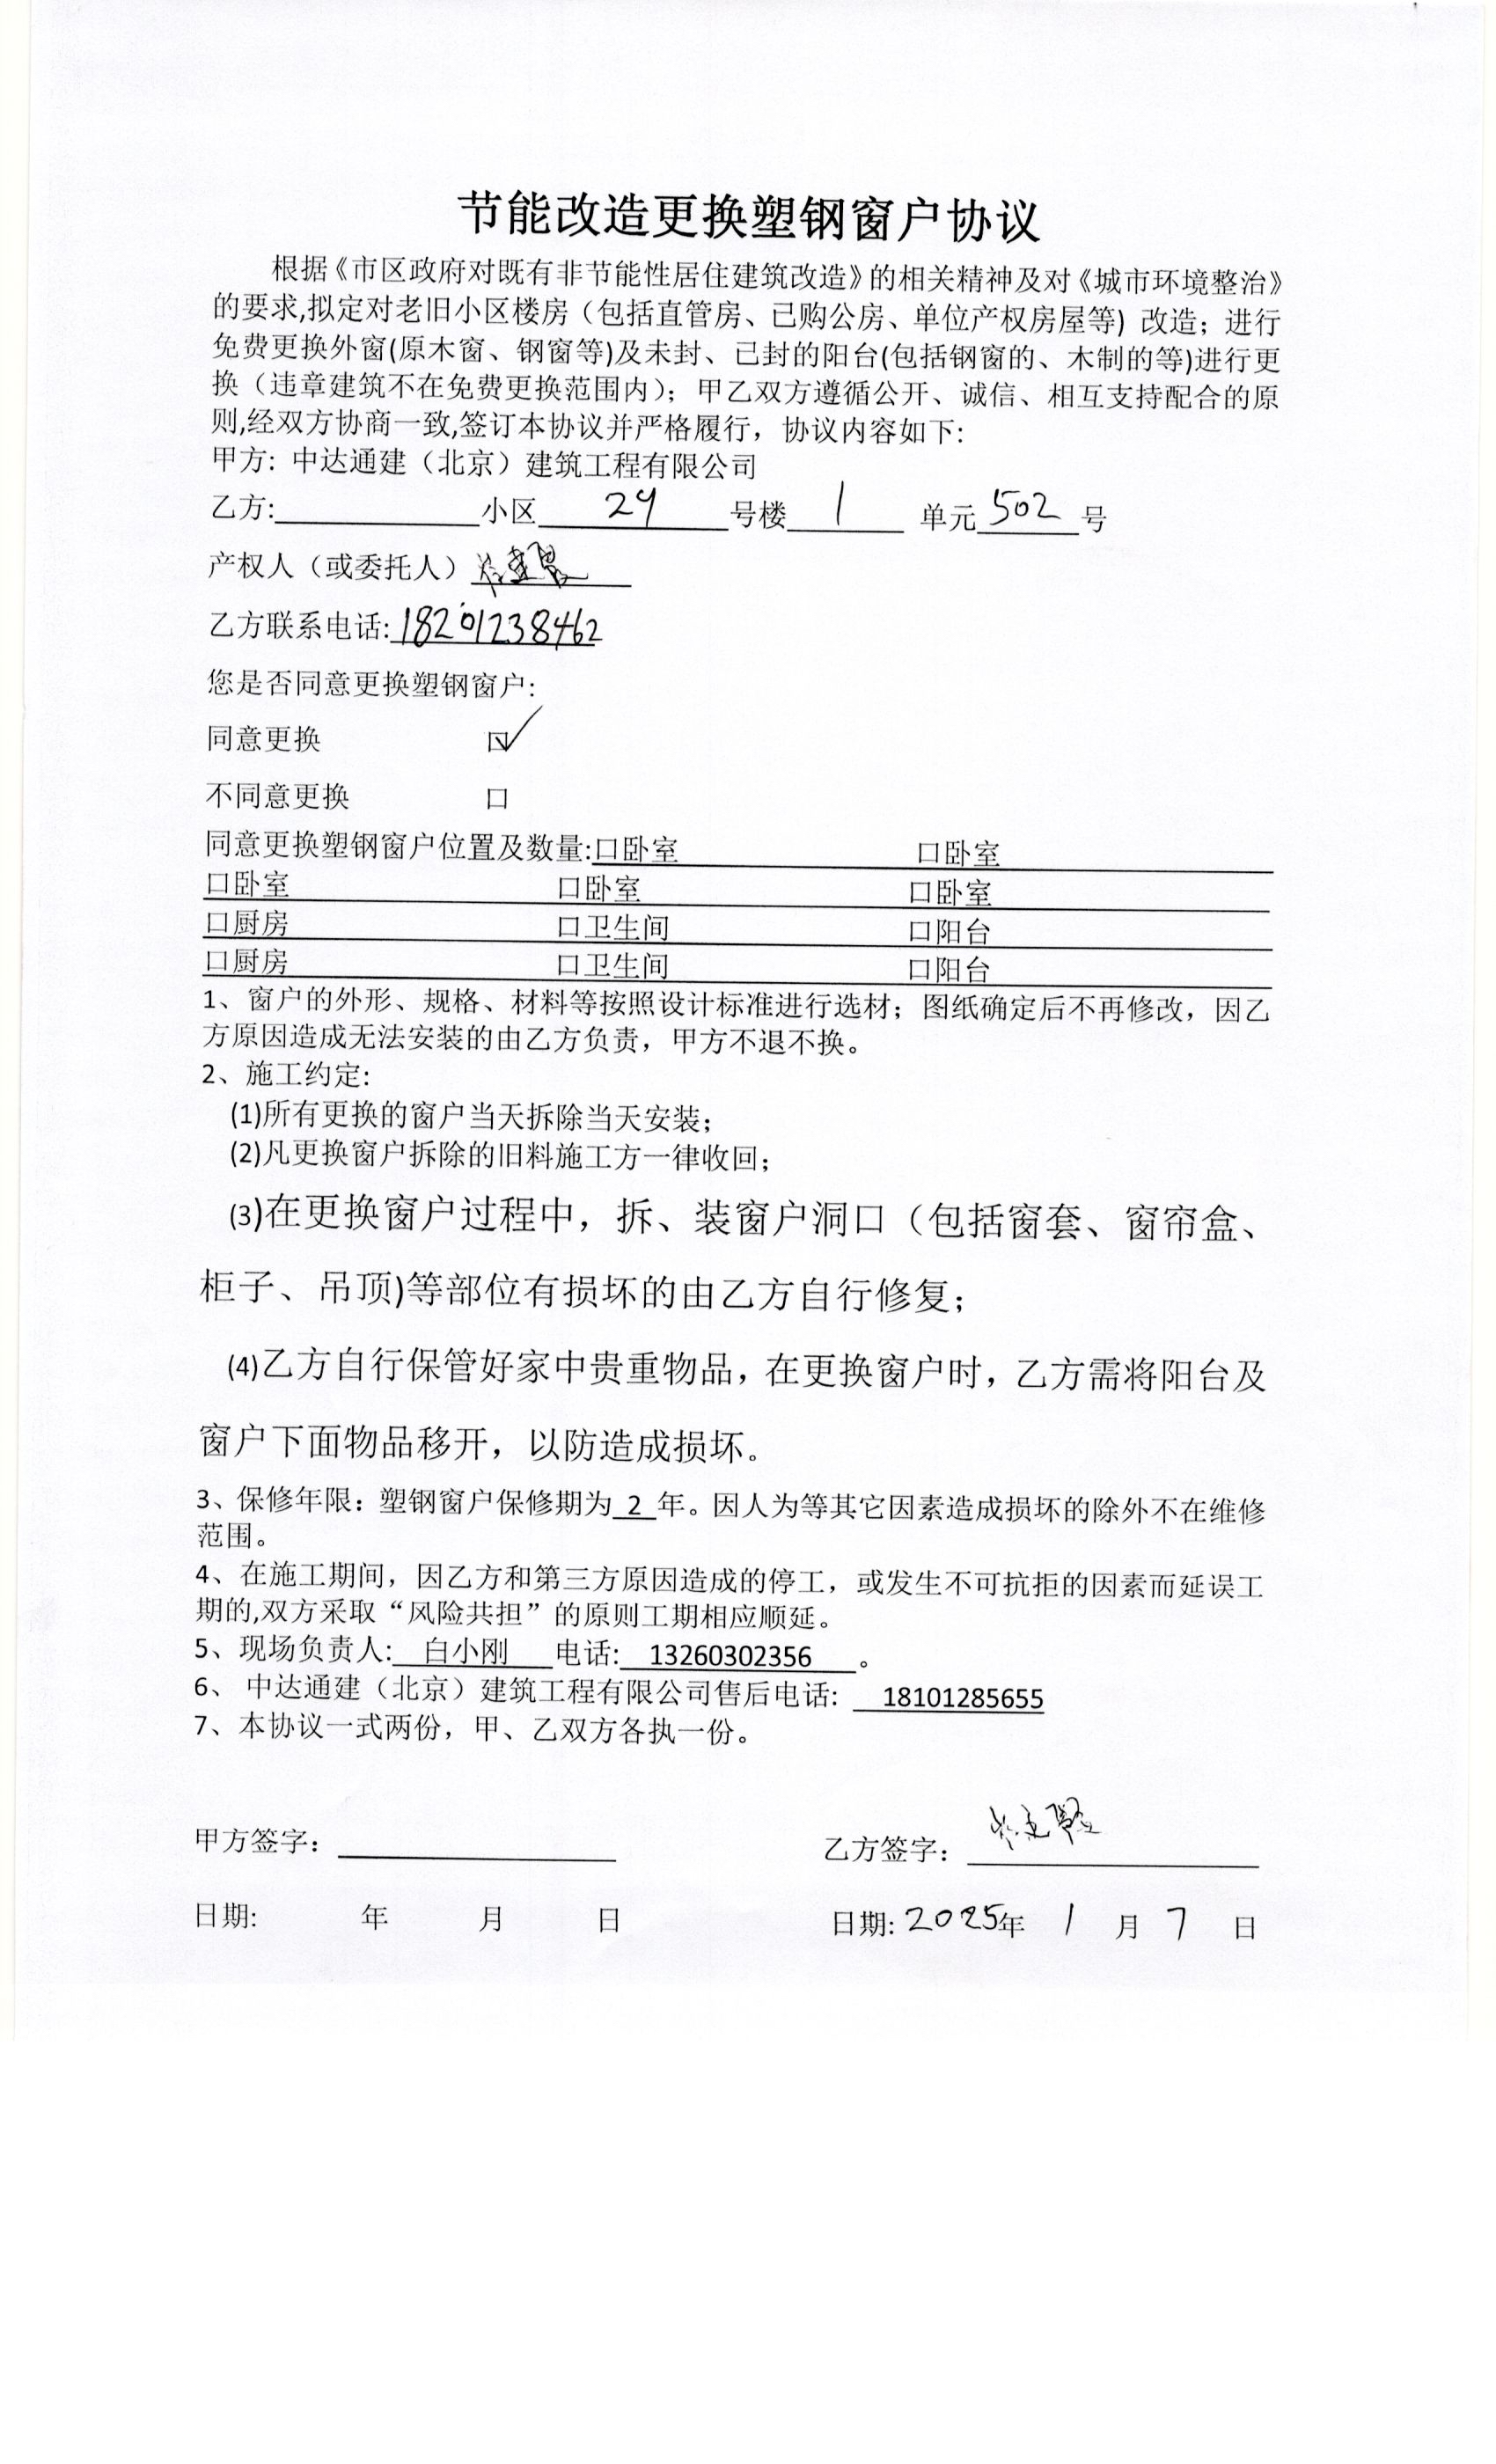 节能改造更换塑钢窗户协议
根据《市区政府对既有非节能性居住建筑改造》的相关精神及对《城市环境整治》
的要求,拟定对老旧小区楼房（包括直管房、已购公房、单位产权房屋等）改造；进行
免费更换外窗(原木窗、钢窗等)及未封、已封的阳台(包括钢窗的、木制的等)进行更
换（违章建筑不在免费更换范围内）；甲乙双方遵循公开、诚信、相互支持配合的原
则,经双方协商一致,签订本协议并严格履行，协议内容如下:
甲方: 中达通建（北京）建筑工程有限公司
乙方:____小区 29 号楼 1 单元 502 号
产权人（或委托人）
乙方联系电话: 18201238462
您是否同意更换塑钢窗户:
同意更换 口✓
不同意更换 口
同意更换塑钢窗户位置及数量:口卧室 口卧室
口卧室 口卧室 口卧室
口厨房 口卫生间 口阳台
口厨房 口卫生间 口阳台
1、窗户的外形、规格、材料等按照设计标准进行选材；图纸确定后不再修改，因乙
方原因造成无法安装的由乙方负责，甲方不退不换。
2、施工约定:
(1)所有更换的窗户当天拆除当天安装；
(2)凡更换窗户拆除的旧料施工方一律收回；
(3)在更换窗户过程中，拆、装窗户洞口（包括窗套、窗帘盒、
柜子、吊顶)等部位有损坏的由乙方自行修复；
(4)乙方自行保管好家中贵重物品，在更换窗户时，乙方需将阳台及
窗户下面物品移开，以防造成损坏。
3、保修年限：塑钢窗户保修期为 2 年。因人为等其它因素造成损坏的除外不在维修
范围。
4、在施工期间，因乙方和第三方原因造成的停工，或发生不可抗拒的因素而延误工
期的,双方采取“风险共担”的原则工期相应顺延。
5、现场负责人: 白小刚 电话: 13260302356 。
6、 中达通建（北京）建筑工程有限公司售后电话: 18101285655
7、本协议一式两份，甲、乙双方各执一份。
甲方签字： 乙方签字：
日期: 年 月 日 日期: 2025年 1 月 7 日